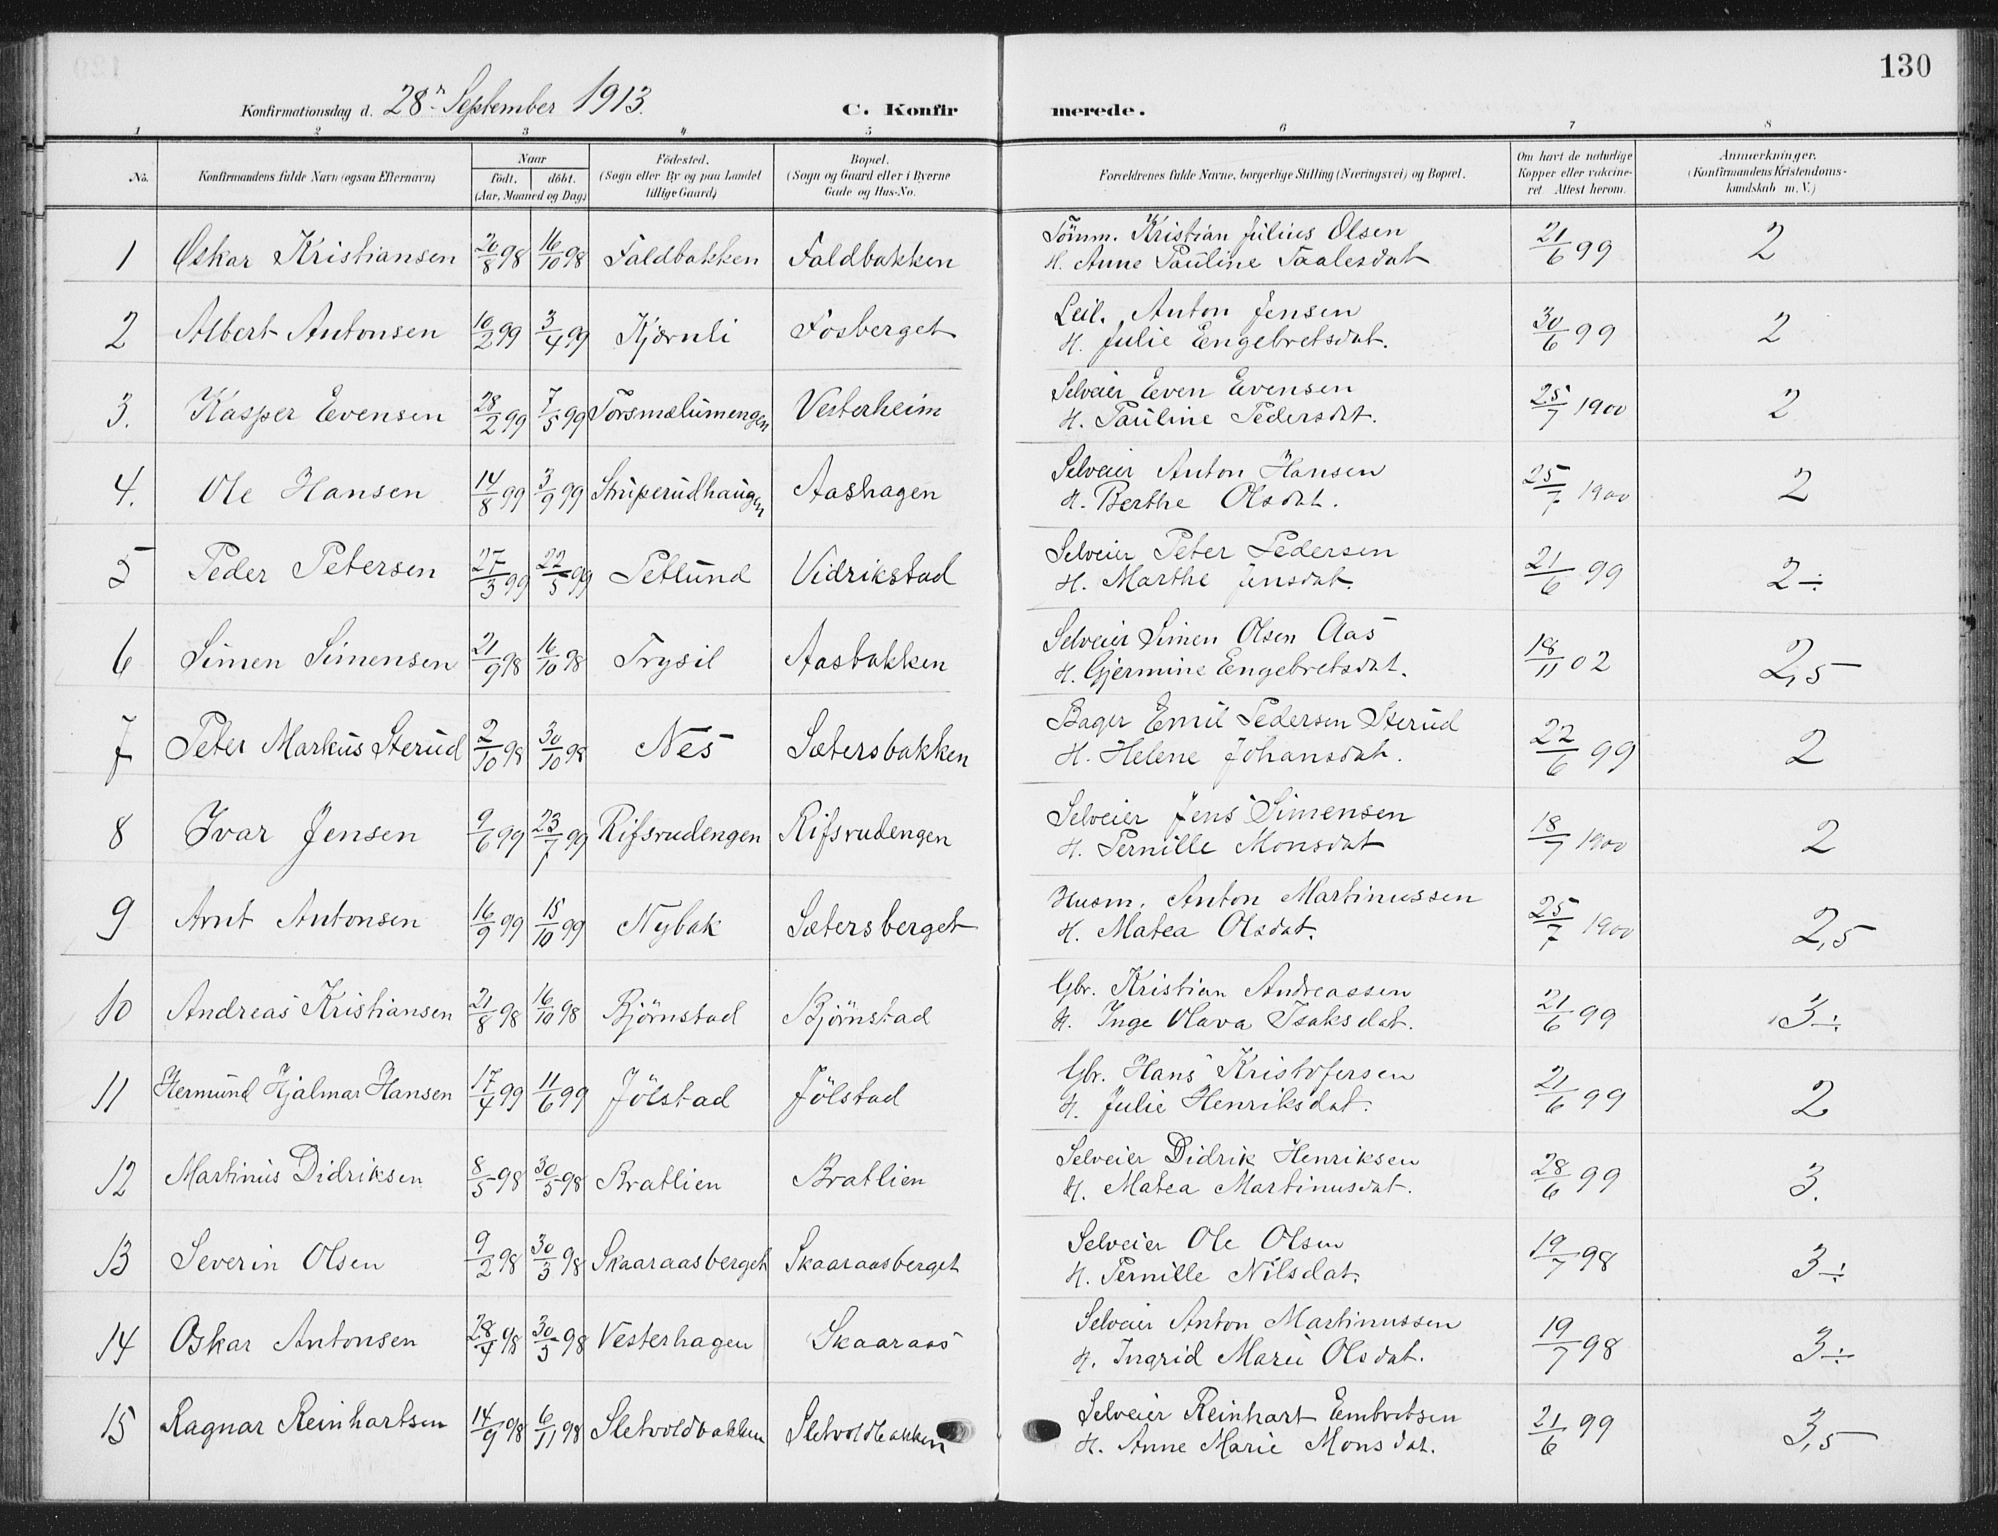 130
Konfirmationsdag d. 28. September 1913. C. Konfirmerede.
1 2 3 4 5 6 7 8
No. Konfirmandens fulde Navn (ogsaa Efternavn) Naar født. døbt. (Aar, Maaned og Dag) Födested. (Sogn eller By og paa Landet tillige Gaard) Bopæl. (Sogn og Gaard eller i Byerne Gade og Hus-No. Forældrenes fulde Navne, borgerlige Stilling (Næringsvei) og Bopæl. Om havt de naturlige Kopper eller vakcineret. Attest herom. Anmærkninger. (Konfirmandens Kristendomskundskab m. V.)
1 Oskar Kristiansen 26/8 98 16/10 98 Faldbakken Faldbakken Tömm. Kristian Julius Olsen 21/6 99 2
H. Anne Pauline Taalesdat
2 Albert Antonsen 10/2 99 3/4 99 Kjærnli Fosberget Leil. Anton Jensen 30/6 99 2
H. Julie Engebretsdat.
3. Kasper Evensen 28/2 99 7/5 99 Torsmælumengen Vesterheim Selveier Even Evensen 25/7 1900 2
H. Pauline Pedersdat.
4. Ole Hansen 14/8 99 3/9 99 Struperudhaugen Aashagen Selveier Anton Hansen 25/7 1900 2
H. Berthe Olsdat.
5 Peder Petersen 27/3 99 22/5 99 Petlund Vidrikstad Selveier Peter Pedersen 21/6 99 2÷
H. Marthe Jensdat.
6 Simen Simensen 21/9 98 16/10 98 Trysil Aasbakken Selveier Simen Olsen Aas 18/11 02 2,5
H. Gjermine Engebretsdat.
7 Peter Markus Sterud 2/10 98 30/10 98 Nes Sætersbakken Bager Emil Pedersen Sterud 22/6 99 2
H. Helene Johansdat.
8 Ivar Jensen 9/6 99 23/7 99 Rifsrudengen Rifsrudengen Selveier Jens Simensen 18/7 1900 2
H. Pernille Monsdat
9 Arnt Antonsen 16/9 99 15/10 99 Nybak Sætersberget Husm. Anton Martinussen 25/7 1900 2,5
H. Matea Olsdat.
10 Andreas Kristiansen 21/8 98 16/10 98 Björnstad Björnstad Gbr. Kristian Andreassen 21/6 99 3÷
H. Inge Olava Isaksdat.
11 Hermund Hjalmar Hansen 17/4 99 11/6 99 Jölstad Jölstad Gbr. Hans Kristofersen 21/6 99 2
H. Julie Henriksdat.
12 Martinus Didriksen 8/5 98 30/5 98 Bratlien Bratlien Selveier Didrik Henriksen 28/6 99 3.
H. Matea Martinusdat.
13 Severin Olsen 9/2 98 30/3 98 Skaaraasberget Skaaraasberget Selveier Ole Olsen 19/7 98 3÷
H. Pernille Nilsdat.
14 Oskar Antonsen 28/4 98 30/5 98 Vesterhagen Skaaraas Selveier Anton Martinussen 19/7 98 3÷
H. Ingrid Marie Olsdat.
15 Ragnar Reinhartsen 14/9 98 6/11 98 Sletvoldbakken Sletvoldbakken Selveier Reinhart Embretsen 21/6 99 3,5
H. Anne Marie Monsdat.